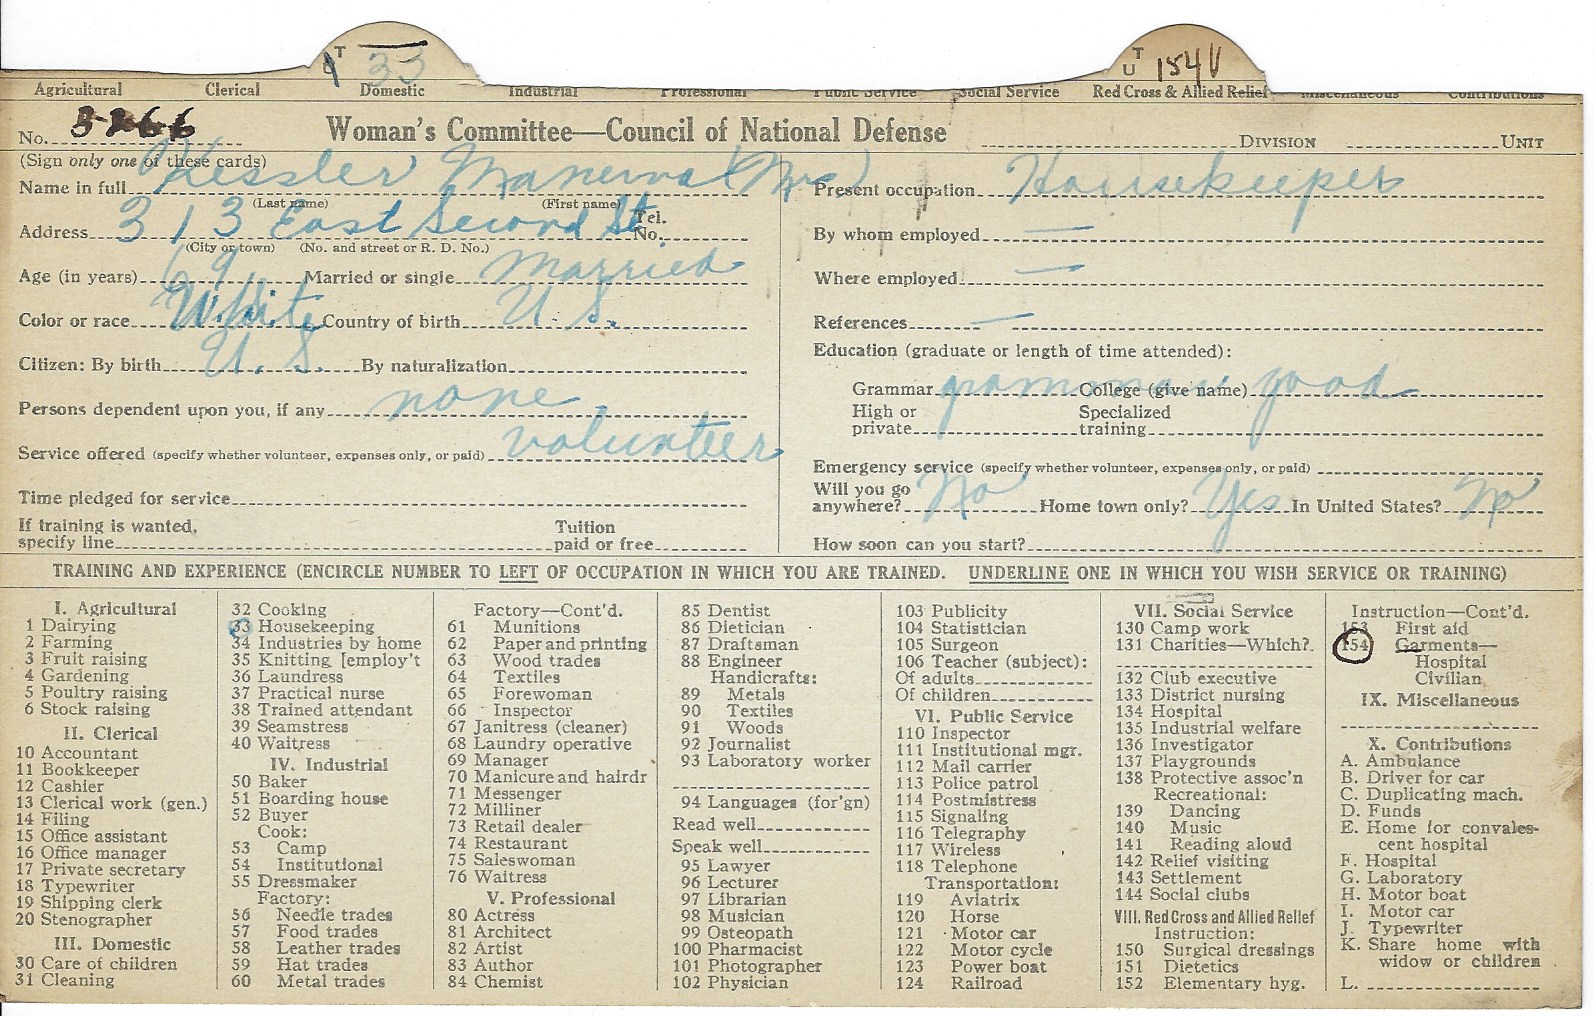 T 33
U
T 154 V
U
Agricultural Clerical Domestic Industrial Professional Public Service Social Service Red Cross & Allied Relief Miscellaneous Contributions
No. 3266 Woman's Committee—Council of National Defense DIVISION UNIT
(Sign only one of these cards)
Name in full Kessler Manerva (Mrs)
(Last name) (First name)
Address 313 East Second St. Tel. No.
(City or town) (No. and street or R. D. No.)
Age (in years) 69 Married or single Married
Color or race White Country of birth U. S.
Citizen: By birth U. S. By naturalization
Persons dependent upon you, if any none
Service offered (specify whether volunteer, expenses only, or paid) volunteer
Time pledged for service
If training is wanted, specify line Tuition paid or free
Present occupation Housekeeper
By whom employed —
Where employed —
References —
Education (graduate or length of time attended):
Grammar grammar College (give name) good
High or private Specialized training
Emergency service (specify whether volunteer, expenses only, or paid)
Will you go anywhere? No Home town only? Yes In United States? No
How soon can you start?
TRAINING AND EXPERIENCE (ENCIRCLE NUMBER TO LEFT OF OCCUPATION IN WHICH YOU ARE TRAINED. UNDERLINE ONE IN WHICH YOU WISH SERVICE OR TRAINING)
I. Agricultural
1 Dairying
2 Farming
3 Fruit raising
4 Gardening
5 Poultry raising
6 Stock raising
II. Clerical
10 Accountant
11 Bookkeeper
12 Cashier
13 Clerical work (gen.)
14 Filing
15 Office assistant
16 Office manager
17 Private secretary
18 Typewriter
19 Shipping clerk
20 Stenographer
III. Domestic
30 Care of children
31 Cleaning
32 Cooking
33 Housekeeping
34 Industries by home
35 Knitting [employ't
36 Laundress
37 Practical nurse
38 Trained attendant
39 Seamstress
40 Waitress
IV. Industrial
50 Baker
51 Boarding house
52 Buyer
Cook:
53 Camp
54 Institutional
55 Dressmaker
Factory:
56 Needle trades
57 Food trades
58 Leather trades
59 Hat trades
60 Metal trades
Factory—Cont'd.
61 Munitions
62 Paper and printing
63 Wood trades
64 Textiles
65 Forewoman
66 Inspector
67 Janitress (cleaner)
68 Laundry operative
69 Manager
70 Manicure and hairdr
71 Messenger
72 Milliner
73 Retail dealer
74 Restaurant
75 Saleswoman
76 Waitress
V. Professional
80 Actress
81 Architect
82 Artist
83 Author
84 Chemist
85 Dentist
86 Dietician
87 Draftsman
88 Engineer
Handicrafts:
89 Metals
90 Textiles
91 Woods
92 Journalist
93 Laboratory worker
94 Languages (for'gn)
Read well
Speak well
95 Lawyer
96 Lecturer
97 Librarian
98 Musician
99 Osteopath
100 Pharmacist
101 Photographer
102 Physician
103 Publicity
104 Statistician
105 Surgeon
106 Teacher (subject):
Of adults
Of children
VI. Public Service
110 Inspector
111 Institutional mgr.
112 Mail carrier
113 Police patrol
114 Postmistress
115 Signaling
116 Telegraphy
117 Wireless
118 Telephone
Transportation:
119 Aviatrix
120 Horse
121 Motor car
122 Motor cycle
123 Power boat
124 Railroad
VII. Social Service
130 Camp work
131 Charities—Which?
132 Club executive
133 District nursing
134 Hospital
135 Industrial welfare
136 Investigator
137 Playgrounds
138 Protective assoc'n
Recreational:
139 Dancing
140 Music
141 Reading aloud
142 Relief visiting
143 Settlement
144 Social clubs
VIII. Red Cross and Allied Relief
Instruction:
150 Surgical dressings
151 Dietetics
152 Elementary hyg.
Instruction—Cont'd.
153 First aid
154 Garments—
Hospital
Civilian
IX. Miscellaneous
X. Contributions
A. Ambulance
B. Driver for car
C. Duplicating mach.
D. Funds
E. Home for convales-
cent hospital
F. Hospital
G. Laboratory
H. Motor boat
I. Motor car
J. Typewriter
K. Share home with
widow or children
L.